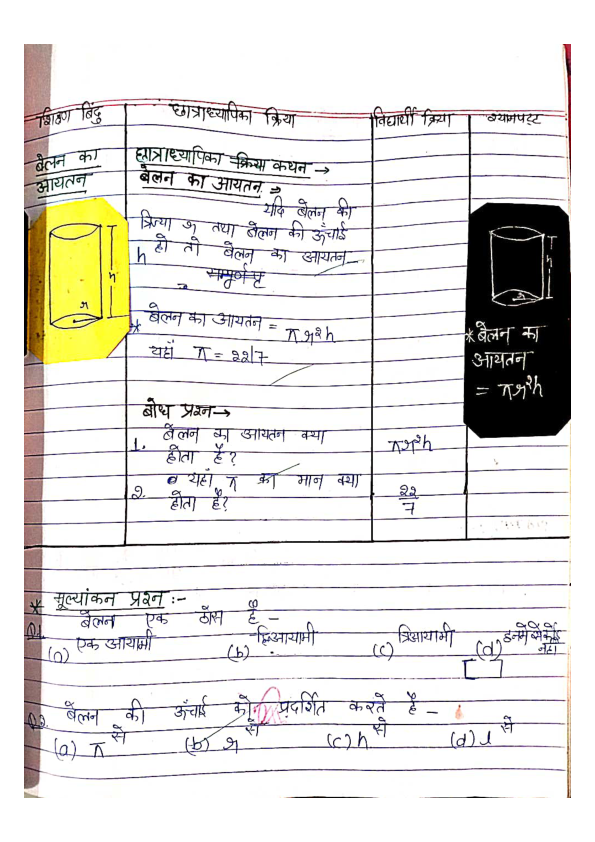 शिक्षण बिंदु
छात्राध्यापिका क्रिया
विद्यार्थी क्रिया
श्यामपट्ट
बेलन का
आयतन
h
r
छात्राध्यापिका क्रिया कथन →
बेलन का आयतन ⇒
यदि बेलन की
त्रिज्या r तथा बेलन की ऊँचाई
h हो तो बेलन का आयतन -
सम्पूर्ण पृ
* बेलन का आयतन = πr²h
यहाँ π = २२/7
बोध प्रश्न →
1. बेलन का आयतन क्या
होता है?
πr²h
२. यहाँ π का मान क्या
होता है?
२२
7
h
r
* बेलन का
आयतन
= πr²h
* मूल्यांकन प्रश्न :-
Q1. बेलन एक ठोस है -
(a) एक आयामी (b) द्विआयामी (c) त्रिआयामी (d) इनमें से कोई नहीं
Q2. बेलन की ऊँचाई को प्रदर्शित करते है -
(a) π से (b) r से (c) h से (d) l से